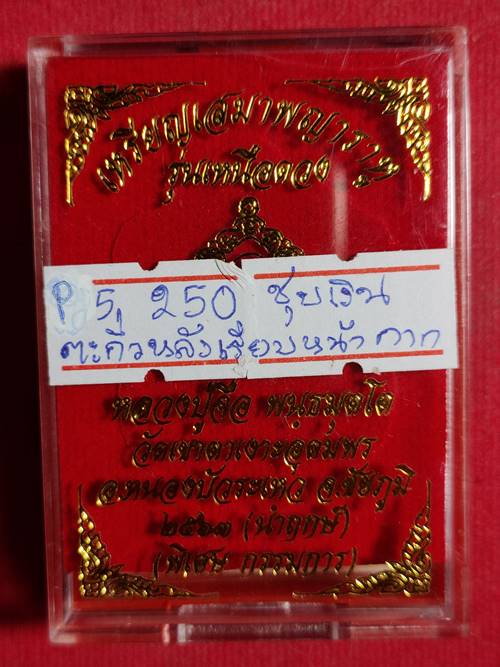 เหรียญเสมาพญาราหู
รุ่นเหนือดวง
P 5, 250 ชุบเงิน
ตะกั่วหลังเรียบหน้ากาก
หลวงปู่สือ พนฺธมุตฺโต
วัดเขาตาเงาะอุดมพร
อ.หนองบัวระเหว จ.ชัยภูมิ
๒๕๖๓ (นำฤกษ์)
(พิเศษ กรรมการ)